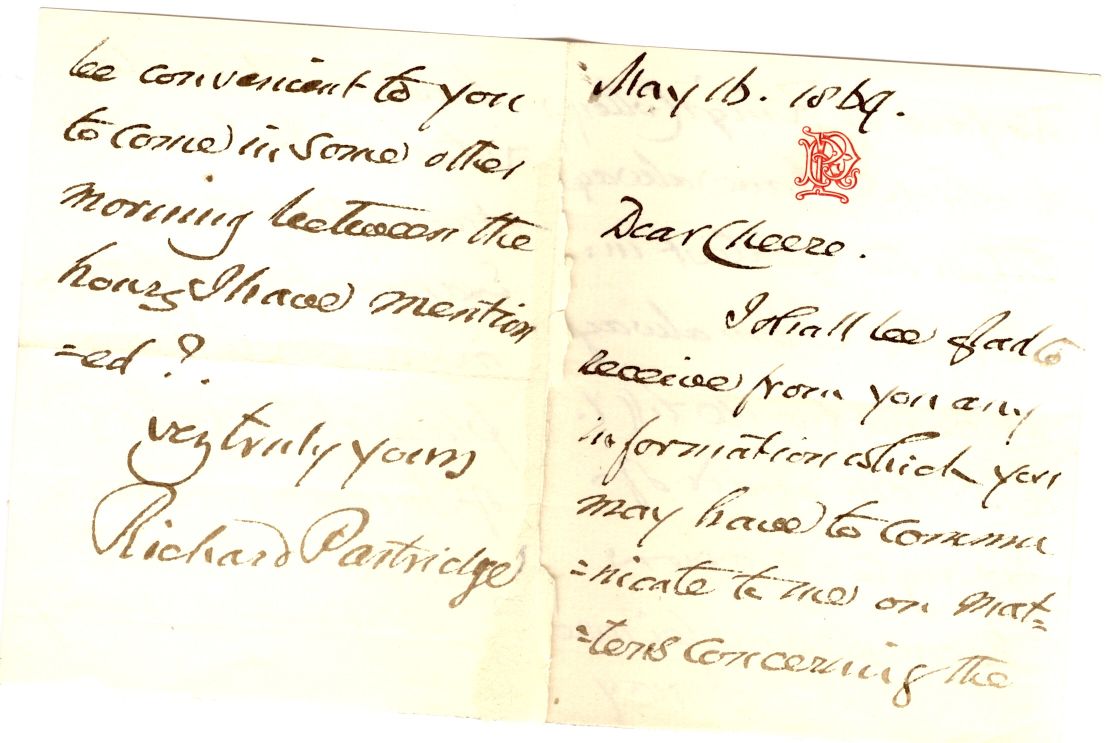 May 16. 1869.
RP
Dear Cheere.
I shall be glad to
receive from you any
information which you
may have to commu
=nicate to me on mat=
=ters concerning the
be convenient to you
to come in some other
morning between the
hours I have mention
=ed ?.
very truly yours
Richard Partridge